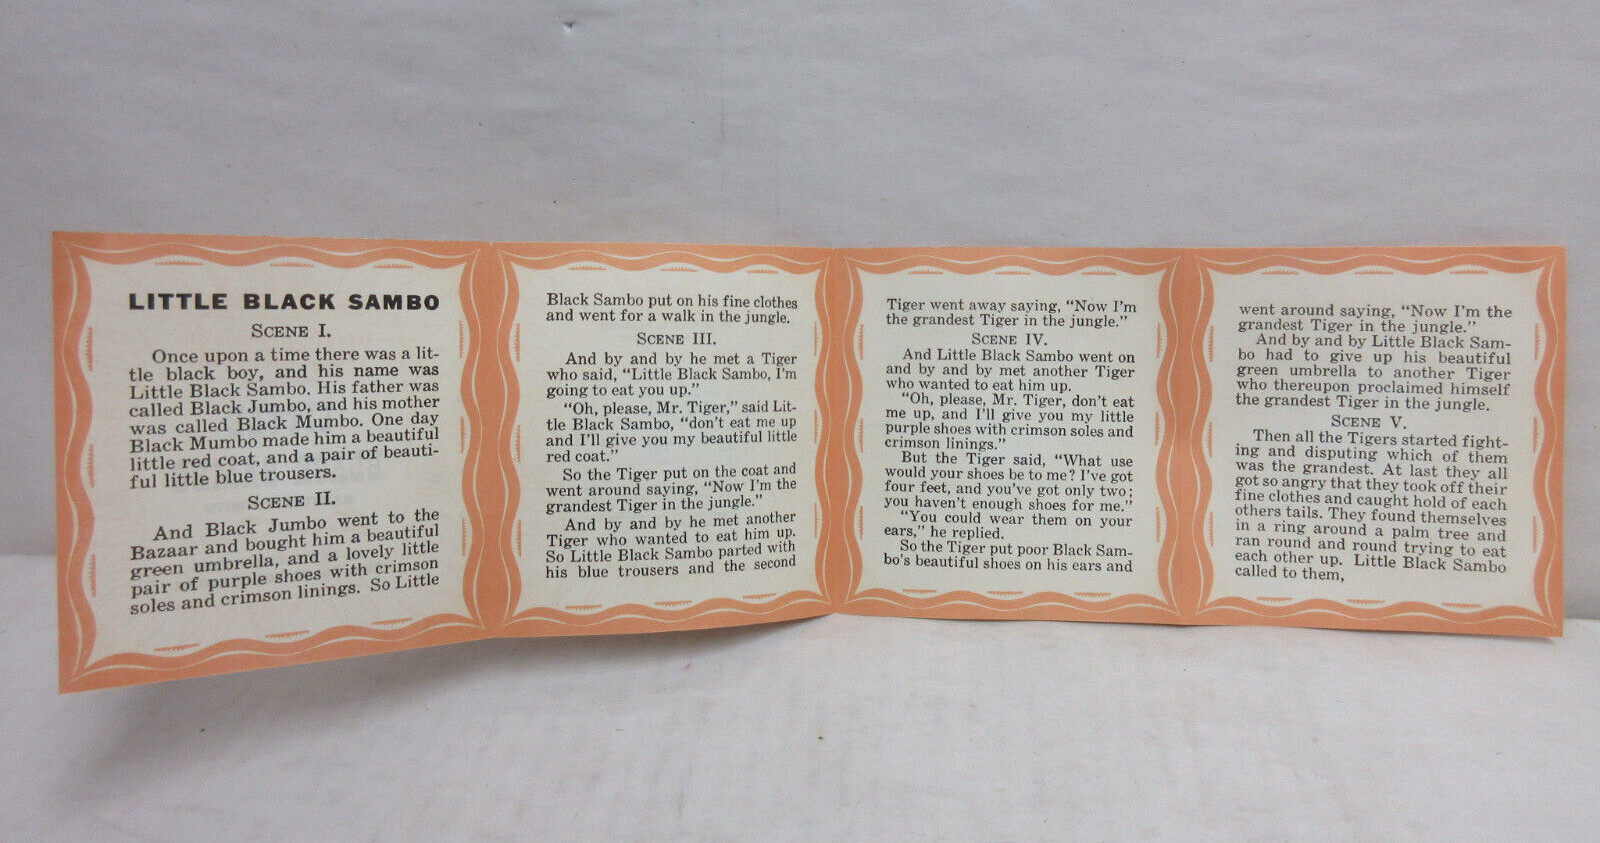 LITTLE BLACK SAMBO
SCENE I.
Once upon a time there was a lit-
tle black boy, and his name was
Little Black Sambo. His father was
called Black Jumbo, and his mother
was called Black Mumbo. One day
Black Mumbo made him a beautiful
little red coat, and a pair of beauti-
ful little blue trousers.
SCENE II.
And Black Jumbo went to the
Bazaar and bought him a beautiful
green umbrella, and a lovely little
pair of purple shoes with crimson
soles and crimson linings. So Little
Black Sambo put on his fine clothes
and went for a walk in the jungle.
SCENE III.
And by and by he met a Tiger
who said, "Little Black Sambo, I'm
going to eat you up."
"Oh, please, Mr. Tiger," said Lit-
tle Black Sambo, "don't eat me up
and I'll give you my beautiful little
red coat."
So the Tiger put on the coat and
went around saying, "Now I'm the
grandest Tiger in the jungle."
And by and by he met another
Tiger who wanted to eat him up.
So Little Black Sambo parted with
his blue trousers and the second
Tiger went away saying, "Now I'm
the grandest Tiger in the jungle."
SCENE IV.
And Little Black Sambo went on
and by and by met another Tiger
who wanted to eat him up.
"Oh, please, Mr. Tiger, don't eat
me up, and I'll give you my little
purple shoes with crimson soles and
crimson linings."
But the Tiger said, "What use
would your shoes be to me? I've got
four feet, and you've got only two;
you haven't enough shoes for me."
"You could wear them on your
ears," he replied.
So the Tiger put poor Black Sam-
bo's beautiful shoes on his ears and
went around saying, "Now I'm the
grandest Tiger in the jungle."
And by and by Little Black Sam-
bo had to give up his beautiful
green umbrella to another Tiger
who thereupon proclaimed himself
the grandest Tiger in the jungle.
SCENE V.
Then all the Tigers started fight-
ing and disputing which of them
was the grandest. At last they all
got so angry that they took off their
fine clothes and caught hold of each
others tails. They found themselves
in a ring around a palm tree and
ran round and round trying to eat
each other up. Little Black Sambo
called to them,